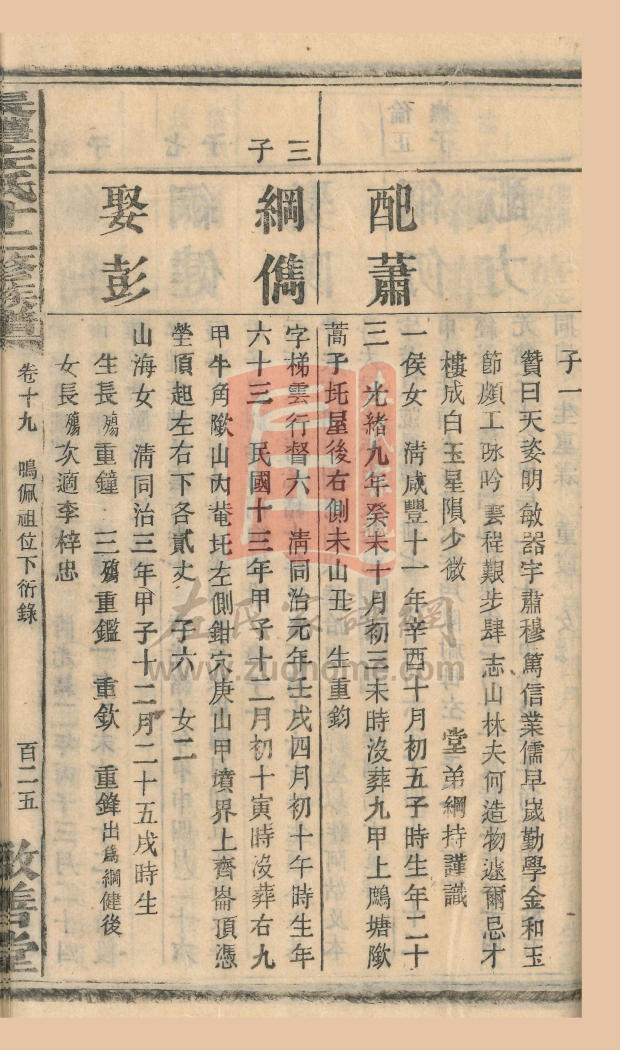 子一
贊曰天姿明敏器宇肅穆篤信業儒早歲勤學金和玉
節頗工咏吟雲程艱步肆志山林夫何造物遽爾忌才
樓成白玉星隕少微　堂弟綱持謹識
配蕭
一侯女　清咸豐十一年辛酉十月初五子時生年二十
三　光緒九年癸未十月初三未時沒葬九甲上鷓塘
蒿子坵屋後右側未山丑　生重鈞
三子
綱儁
字梯雲行督六　清同治元年壬戌四月初十午時生年
六十三　民國十三年甲子十二月初十寅時沒葬右九
甲牛角山內菴坵左側鉗穴庚山甲墳界上齊崙頂憑
塋頂起左右下各貳丈　子六　女二
娶彭
山海女　清同治三年甲子十二月二十五戌時生
生長殤重鐘　三殤重鑑　重欽　重鋒出爲綱健後
女長殤次適李梓忠
左氏十二修族譜
卷十九　鳴佩祖位下衍錄
百二五
敦善堂
左氏家譜網
www.zuohome.com